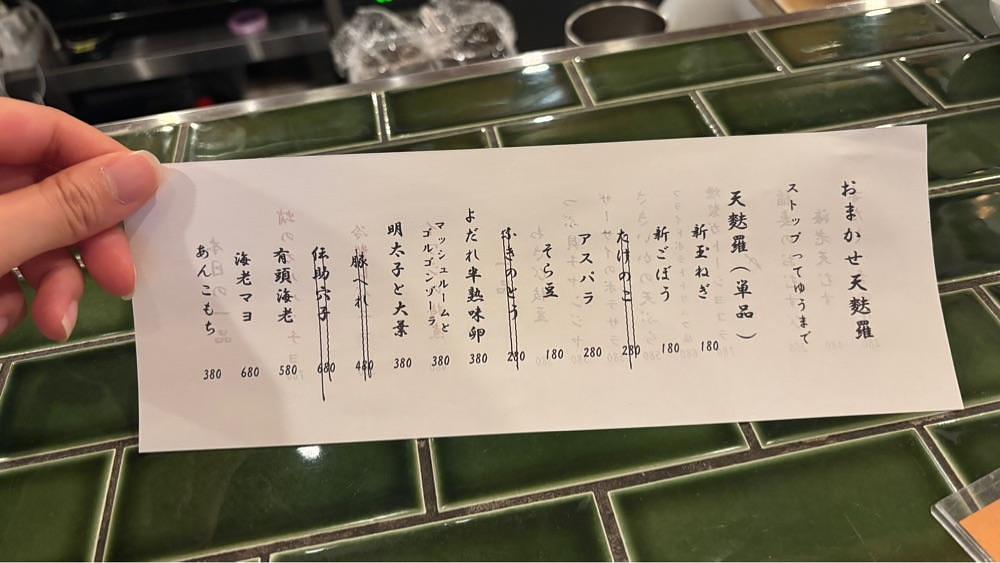 おまかせ天麩羅
ストップってゆうまで
天麩羅（単品）
新玉ねぎ 180
新ごぼう 180
たけのこ 280
アスパラ 280
そら豆 180
ふきのとう 280
よだれ半熟味卵 380
マッシュルームと
ゴルゴンゾーラ 380
明太子と大葉 380
豚へれ 480
伝助穴子 680
有頭海老 580
海老マヨ 680
あんこもち 380